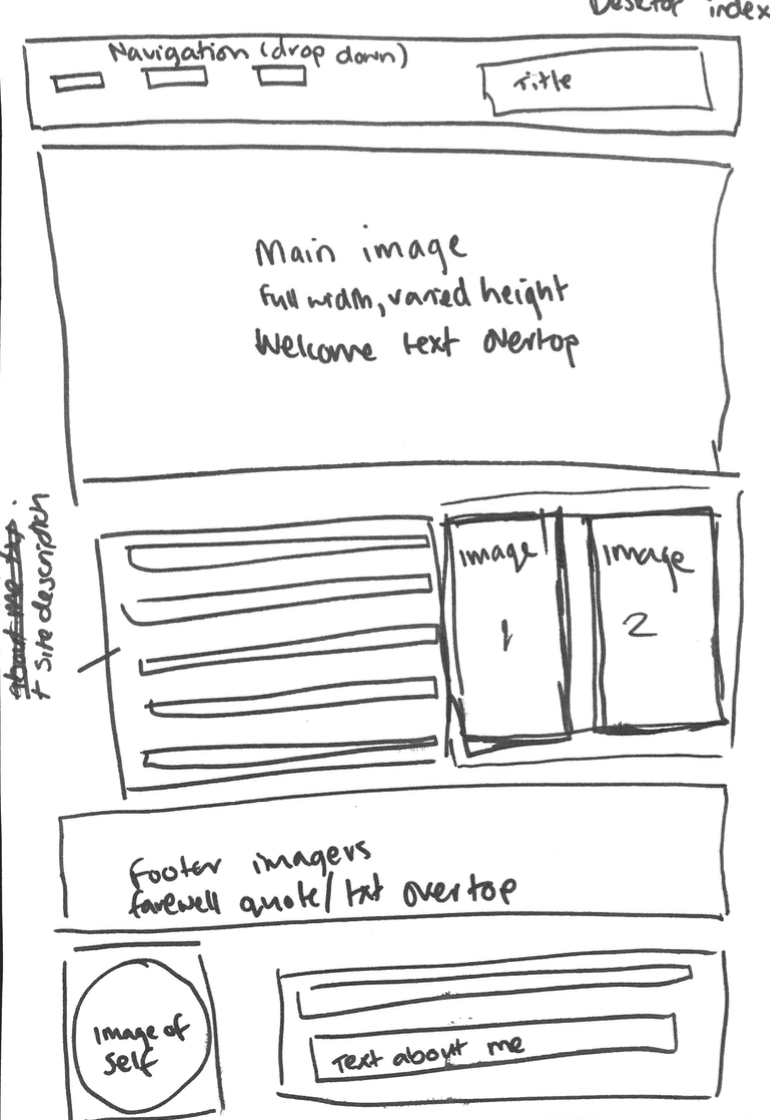 Desktop index
Navigation (drop down)
Title
Main image
Full width, varied height
Welcome text overtop
about me top.
+ site description
image 1
image 2
Footer imagers
farewell quote/txt overtop
Image of self
Text about me